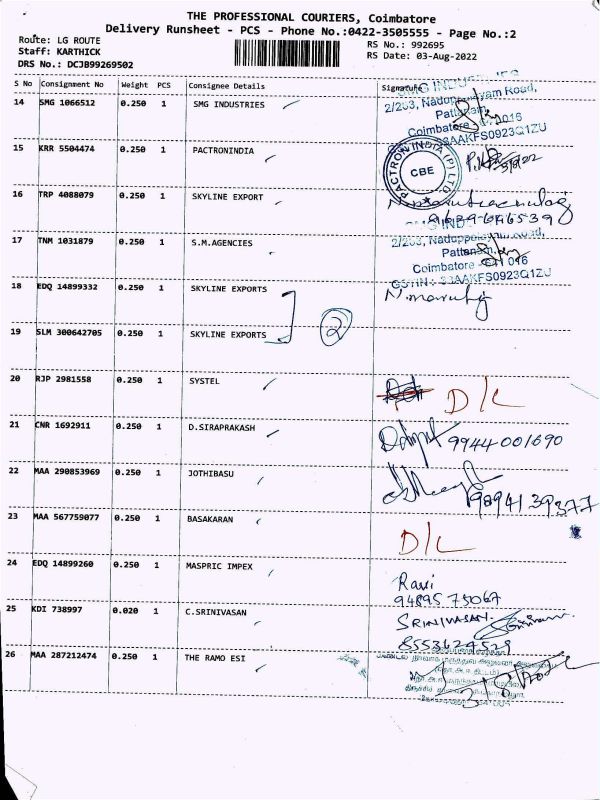 THE PROFESSIONAL COURIERS, Coimbatore
Delivery Runsheet - PCS - Phone No.:0422-3505555 - Page No.:2
Route: LG ROUTE
Staff: KARTHICK
DRS No.: DCJB99269502
RS No.: 992695
RS Date: 03-Aug-2022
S No Consignment No Weight PCS Consignee Details Signature
14 SMG 1066512 0.250 1 SMG INDUSTRIES
SMG INDUSTRIES
Pattanam,
Coimbatore
15 KRR 5504474 0.250 1 PACTRONINDIA
PACTRON INDIA (P) LTD.
CBE
16 TRP 4088079 0.250 1 SKYLINE EXPORT
17 TNM 1031879 0.250 1 S.M.AGENCIES
Pattanam,
Coimbatore
GSTIN: 33AAKFS0923Q1ZU
18 EDQ 14899332 0.250 1 SKYLINE EXPORTS
19 SLM 300642705 0.250 1 SKYLINE EXPORTS
2
20 RJP 2981558 0.250 1 SYSTEL
D/L
21 CNR 1692911 0.250 1 D.SIRAPRAKASH
9944001690
22 MAA 290853969 0.250 1 JOTHIBASU
9894139377
23 MAA 567759077 0.250 1 BASAKARAN
D/L
24 EDQ 14899260 0.250 1 MASPRIC IMPEX
Ravi
9489575067
25 KDI 738997 0.020 1 C.SRINIVASAN
SRINIVASAN.
8553624529
26 MAA 287212474 0.250 1 THE RAMO ESI